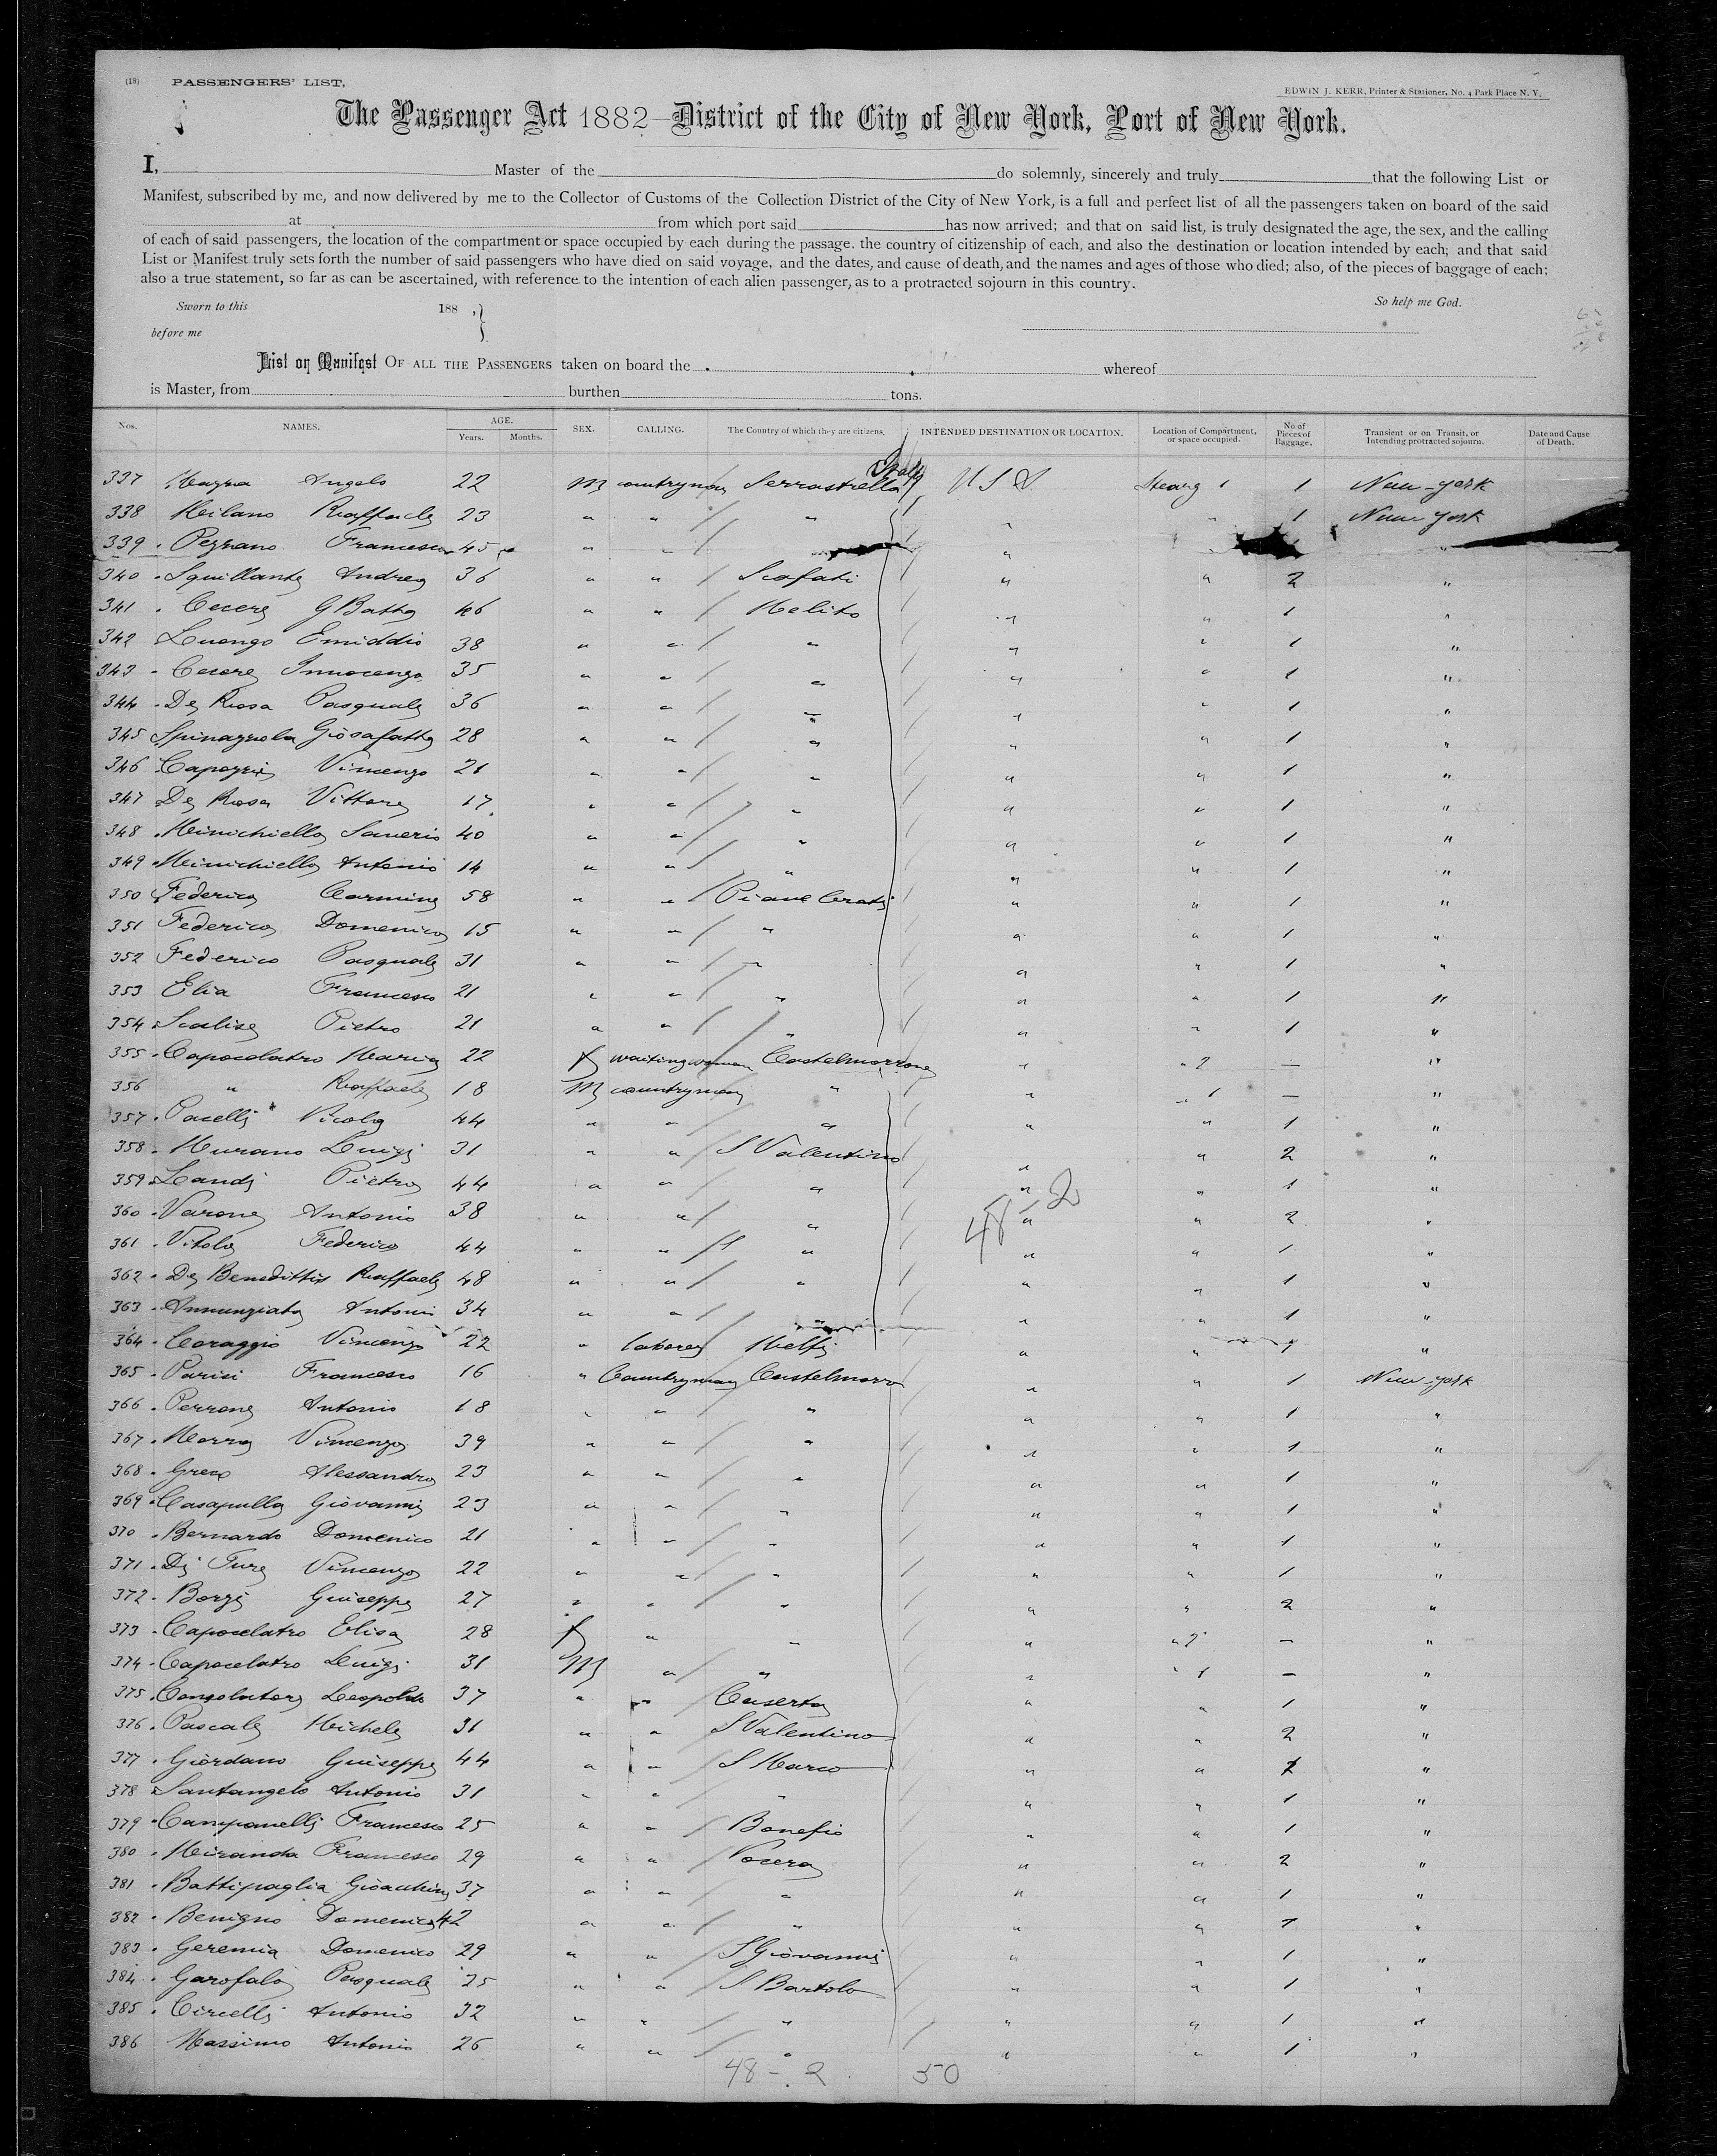 (18) PASSENGERS' LIST,
EDWIN J. KERR, Printer & Stationer, No. 4 Park Place N. Y.
The Passenger Act 1882—District of the City of New York, Port of New York.
I, Master of the do solemnly, sincerely and truly that the following List or
Manifest, subscribed by me, and now delivered by me to the Collector of Customs of the Collection District of the City of New York, is a full and perfect list of all the passengers taken on board of the said
at from which port said has now arrived; and that on said list, is truly designated the age, the sex, and the calling
of each of said passengers, the location of the compartment or space occupied by each during the passage, the country of citizenship of each, and also the destination or location intended by each; and that said
List or Manifest truly sets forth the number of said passengers who have died on said voyage, and the dates, and cause of death, and the names and ages of those who died; also, of the pieces of baggage of each;
also a true statement, so far as can be ascertained, with reference to the intention of each alien passenger, as to a protracted sojourn in this country.
Sworn to this 188 , } So help me God.
before me
List or Manifest OF ALL THE PASSENGERS taken on board the whereof
is Master, from burthen tons.
Nos. NAMES. AGE. Years. Months. SEX. CALLING. The Country of which they are citizens. INTENDED DESTINATION OR LOCATION. Location of Compartment, or space occupied. No of Pieces of Baggage. Transient or on Transit, or Intending protracted sojourn. Date and Cause of Death.
Italy
337 Angelo 22 M countryman Serrastretta U S A Steerag 1 1 New-york
338 Milano Raffaele 23 " " " " " 1 New york
339 Francesco 45 " " " "
340 Squillante Andrea 36 " " Scafati " " 2 "
341 Cecere G Batta 46 " " Melito " " 1 "
342 Luongo Emiddio 38 " " " " " 1 "
343 Cecere Innocenzo 35 " " " " " 1 "
344 De Rosa Pasquale 36 " " " " " 1 "
345 Spinazzola Giosafatta 28 " " " " " 1 "
346 Capozzi Vincenzo 21 " " " " " 1 "
347 De Rosa Vittore 17 " " " " " 1 "
348 Minichiello Saverio 40 " " " " " 1 "
349 Minichiello Antonio 14 " " " " " 1 "
350 Federico Carmine 58 " " Piane Crati " " 1 "
351 Federico Domenico 15 " " " " " 1 "
352 Federico Pasquale 31 " " " " " 1 "
353 Elia Francesco 21 " " " " " 1 "
354 Scalise Pietro 21 " " " " " 1 "
355 Capocelatro Maria 22 f waitingwoman Castelmorrone " " 2 — "
356 " Raffaele 18 M countryman " " " 1 — "
357 Pacelli Nicola 44 " " " " " 1 "
358 Murano Luigi 31 " " S Valentino " " 2 "
359 Landi Pietro 44 " " " " " 1 "
48 - 2
360 Varone Antonio 38 " " " " " 2 "
361 Vitolo Federico 44 " " " " " 1 "
362 De Benedittis Raffaele 48 " " " " " 1 "
363 Annunziata Antoni 34 " " " " " 1 "
364 Coraggio Vincenzo 22 " laborer Melfi " " 1 "
365 Parisi Francesco 16 " Countryman Castelmorro " " 1 New-york
366 Perrone Antonio 18 " " " " " 1 "
367 Marra Vincenzo 39 " " " " " 1 "
368 Greco Alessandro 23 " " " " " 1 "
369 Casapulla Giovanni 23 " " " " " 1 "
370 Bernardo Domenico 21 " " " " " 1 "
371 Di Vincenzo 22 " " " " " 1 "
372 Giuseppe 27 " " " " " 2 "
373 Capocelatro Elisa 28 f " " " " 2 — "
374 Capocelatro Luigi 31 M " " " " 1 — "
375 Consolatore Leopoldo 37 " " Caserta " " 1 "
376 Pascale Michele 31 " " S Valentino " " 2 "
377 Giordano Giuseppe 44 " " S Marco " " "
378 Santangelo Antonio 31 " " " " " 1 "
379 Campanelli Francesco 25 " " Bonefio " " 1 "
380 Miranda Francesco 29 " " Nocera " " 2 "
381 Battipaglia Gioacchino 37 " " " " " 1 "
382 Benigno Domenico 42 " " " " " 1 "
383 Geremia Domenico 29 " " S Giovanni " " 1 "
384 Garofalo Pasquale 25 " " S Bartolo " " 1 "
385 Circelli Antonio 32 " " " " " 1 "
386 Massimo Antonio 26 " " " " " 1 "
48 - 2 50